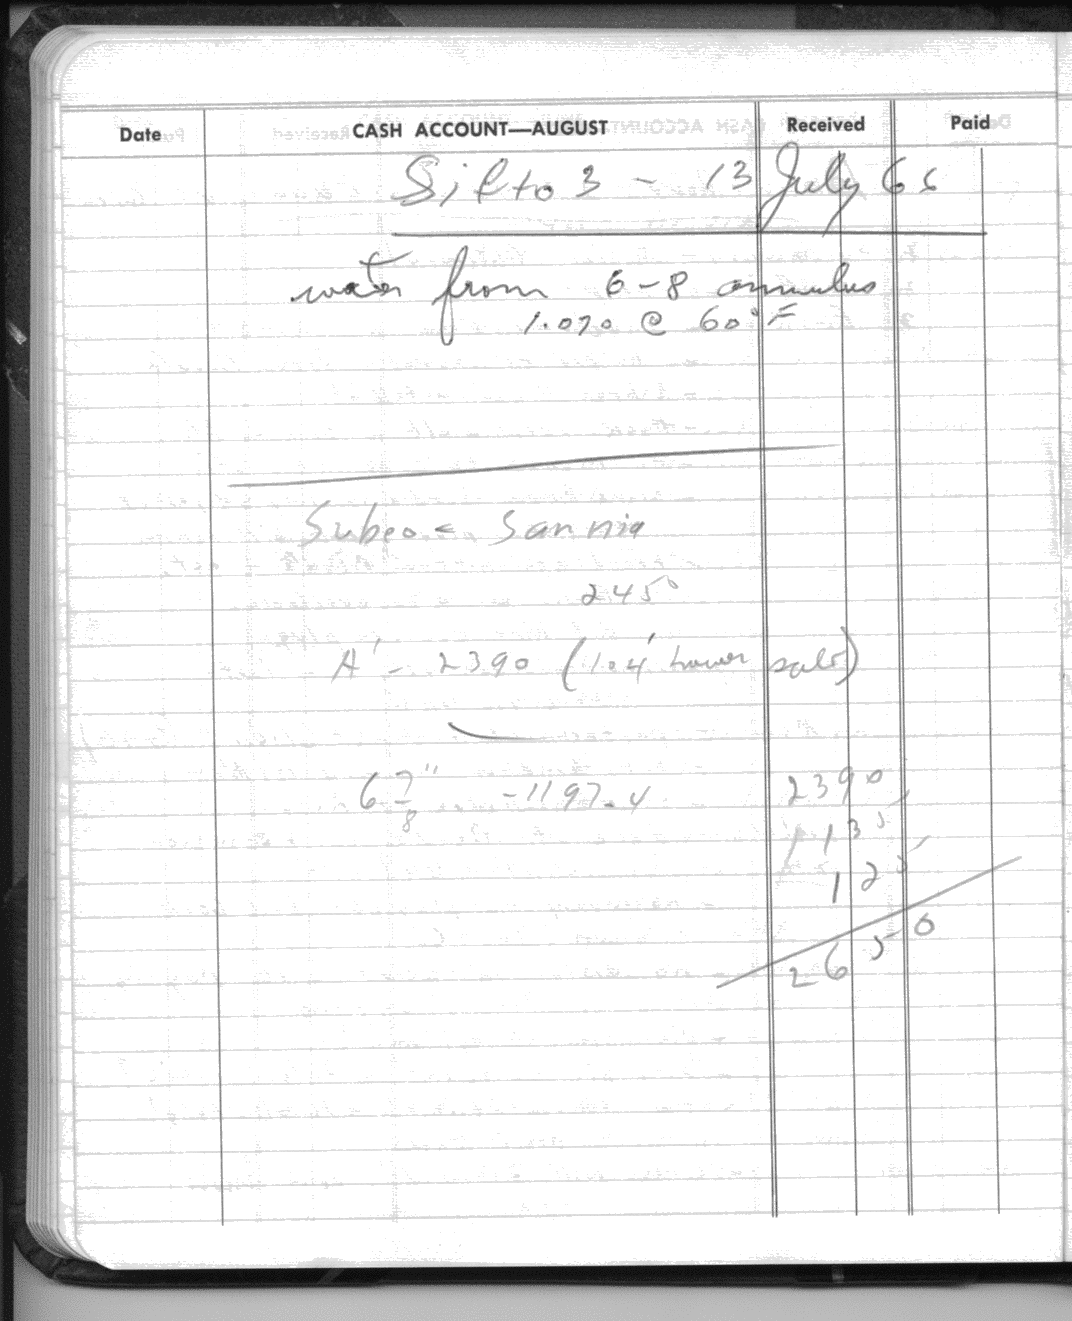 Date CASH ACCOUNT—AUGUST Received Paid
Sifto 3 - 13 July 66
water from 6-8 annulus
1.070 @ 60°F
Subeo Sarnia
2450
A' - 2390 (104' lower salt)
6 7/8" -1197.4 2390
135
125
2650